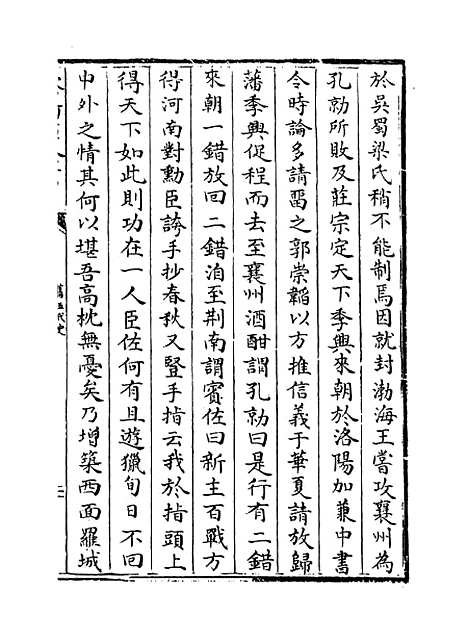 於吳蜀梁氏稍不能制焉因就封渤海王嘗攻襄州為
孔勍所敗及莊宗定天下季興來朝於洛陽加兼中書
令時論多請留之郭崇韜以方推信義于華夏請放歸
藩季興促程而去至襄州酒酣謂孔勍曰是行有二錯
來朝一錯放回二錯洎至荆南謂賓佐曰新主百戰方
得河南對勳臣誇手抄春秋又豎手指云我於指頭上
得天下如此則功在一人臣佐何有且遊獵旬日不回
中外之情其何以堪吾高枕無憂矣乃增築西面羅城
舊五代史
二